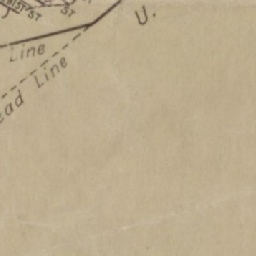 ST
U.
Line
ead Line